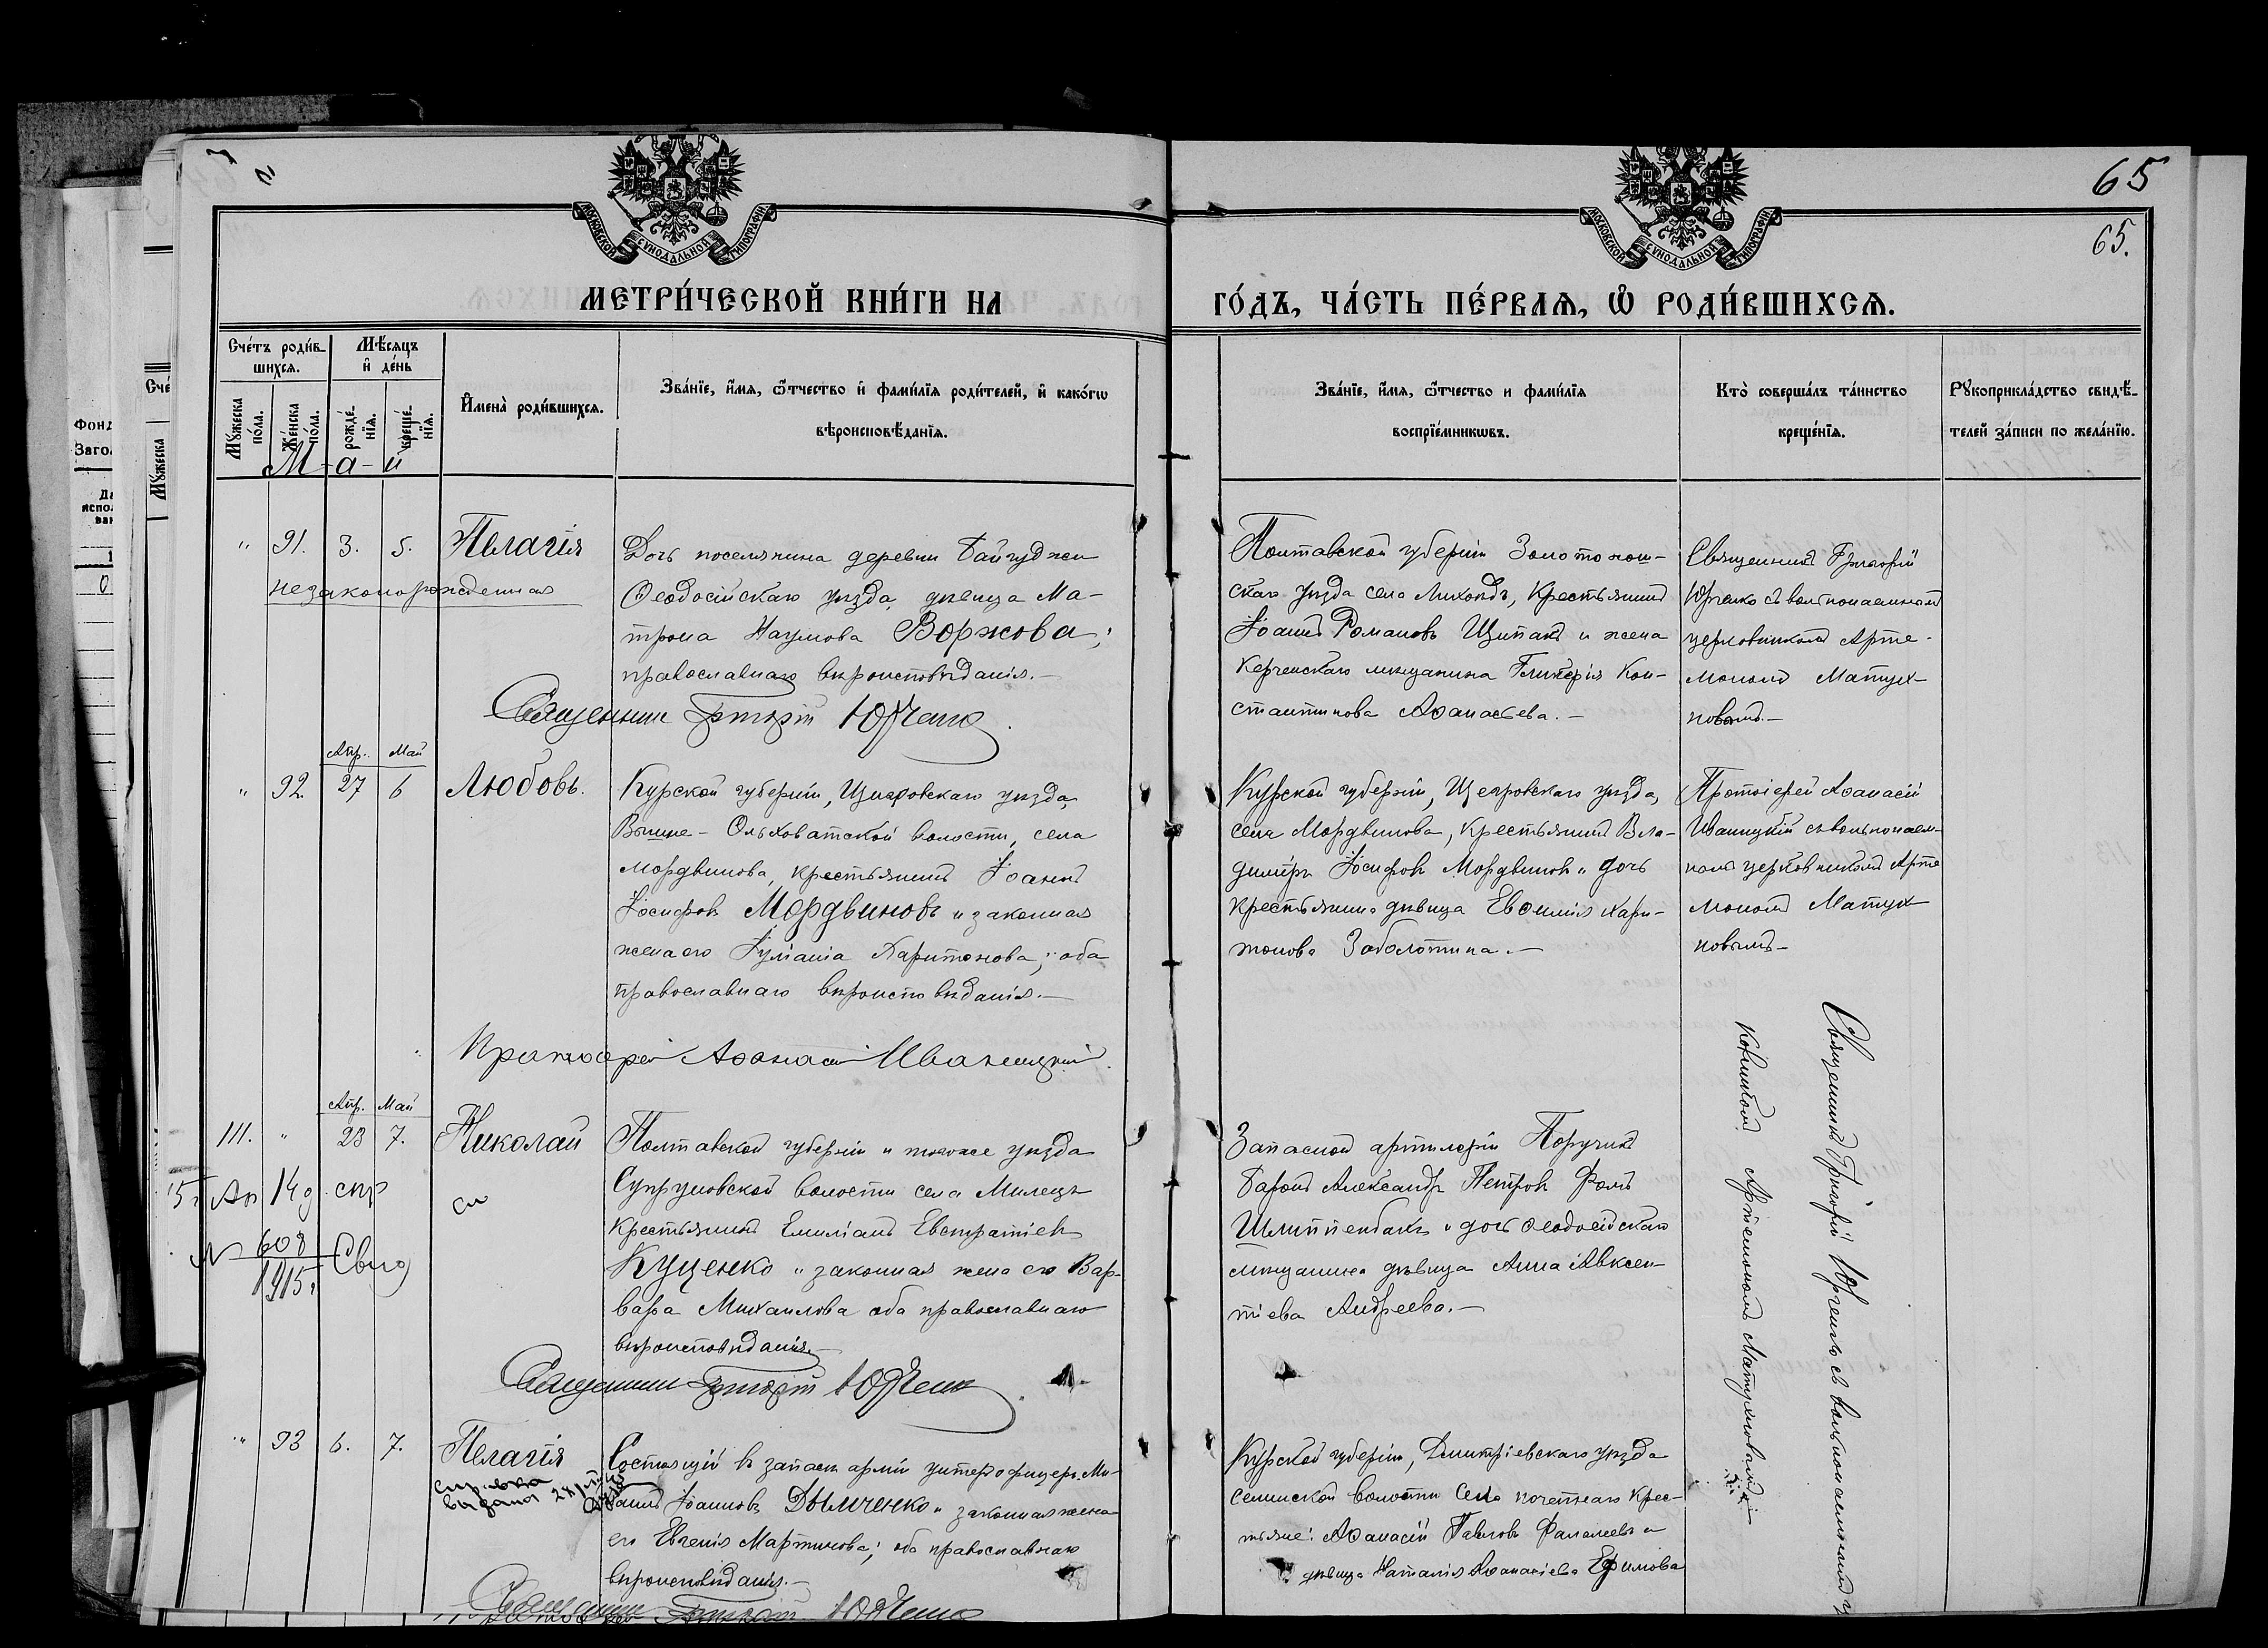 65
65.
МОСКОВСКОЙ СѴНОДАЛЬНОЙ ТИПОГРАФІИ
МОСКОВСКОЙ СѴНОДАЛЬНОЙ ТИПОГРАФІИ
МЕТРИ́ЧЕСКОЙ КНИ́ГИ НА
ГО́ДЪ, ЧА́СТЬ ПЕ́РВАѦ, Ѡ҆ РОДИ́ВШИХСѦ.
Сче́тъ роди́в-
шихсѧ.
Мѣ́сѧцъ
и҆ де́нь
Мꙋ́жеска
по́ла.
Же́нска
по́ла.
рожде́-
нїѧ.
креще́-
нїѧ.
И҆мена̀ роди́вшихсѧ.
Зва́нїе, и҆́мѧ, ѻ҆́тчество и҆ фами́лїѧ роди́телей, и҆ како́гѡ
вѣроисповѣ́данїѧ.
Зва́нїе, и҆́мѧ, ѻ҆́тчество и фами́лїѧ
воспрїе́мникѡвъ.
Кто̀ соверша́лъ та́инство
креще́нїѧ.
Рꙋкоприкла́дство свидѣ́-
телей за́писи по жела́нїю.
М-а-й
" 91. 3. 5. Пелагія
незаконорожденная
Дочь поселянина деревни Байгуджи
Ѳеодосійскаго уѣзда, дѣвица Ма-
трона Наумова Воржова;
православнаго вѣроисповѣданія.—
Священник Григорій Юрченко
Полтавской губерніи Золотонош-
скаго уѣзда села Крестьянинъ
Іоаннъ Романовъ Щипакъ и жена
Керченскаго мѣщанина Гликерія Кон-
стантинова Аѳанасьева.—
Священникъ Григорій
Юрченко съ вольнонаемнымъ
церковникомъ Арте-
мономъ Матух-
новымъ.—
Апр. Май
" 92. 27 6 Любовь.
Курской губерніи, Щигровскаго уѣзда
Выше-Ольховатской волости, села
Мордвинова, крестьянинъ Іоаннъ
Іосифовъ Мордвиновъ и законная
жена его Іуліанія Харитонова; оба
православнаго вѣроисповѣданія.—
Протоіерей Аѳанасій Иваницкій.
Курской губерніи, Щегровскаго уѣзда,
села Мордвинова, крестьянинъ Вла-
димиръ Іосифовъ Мордвинов и дочь
крестьянина дѣвица Евѳимія Хари-
тонова Заболотина.—
Протоіерей Аѳанасій
Иваницкій съ вольнонаем-
нымъ церковникомъ Арте
мономъ Матух-
новымъ—
Апр. Май
111. " 28 7. Николай
Полтавской губерніи и того же уѣзда
Супруновской волости села Милецъ
крестьянинъ Емиліанъ Евстратіев
Куценко и законная жена его Вар-
вара Михаилова оба православнаго
вѣроисповѣданія.—
Священник Григорій Юрченко
608
1915г
Запасной артилеріи Поручикъ
Баронъ Александръ Петровъ Фонъ
Шлиппенбахъ и дочь Ѳеодосійскаго
мѣщанина дѣвица Анна Авксен-
тіева Андреева.—
Священникъ Григорій Юрченко съ вольнонаемнымъ
Артемономъ Матухновымъ.—
" 93 6. 7. Пелагія
справка
выдана
Состоящій въ запасѣ арміи унтеръ офицеръ
Іоанновъ Дымченко и законная жена
его Евгенія Мартинова; оба православнаго
вѣроисповѣданія.—
Священник Григорій Юрченко
Курской губерніи, Дмитріевскаго уѣзда
волости села крес-
тьяне: Аѳанасій Павловъ и
дѣвица Наталія Аѳанасіева Ефимова
Фонд
Заго
Сче́
Мꙋ́жеска